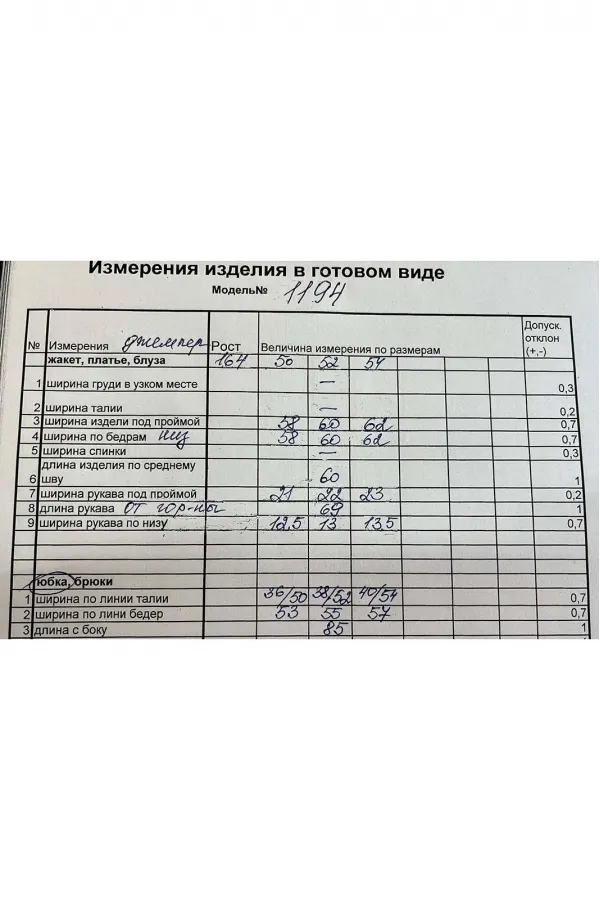 Измерения изделия в готовом виде
Модель№ 1194
№ Измерения джемпер Рост Величина измерения по размерам Допуск. отклон (+,-)
жакет, платье, блуза 164 50 52 54
1 ширина груди в узком месте — 0,3
2 ширина талии — 0,2
3 ширина издели под проймой 58 60 62 0,7
4 ширина по бедрам низ 58 60 62 0,7
5 ширина спинки — 0,3
длина изделия по среднему
6 шву 60 1
7 ширина рукава под проймой 21 22 23 0,2
8 длина рукава от гор-ны 69 1
9 ширина рукава по низу 12,5 13 13,5 0,7
юбка, брюки
1 ширина по линии талии 36/50 38/52 40/54 0,7
2 ширина по лини бедер 53 55 57 0,7
3 длина с боку 85 1